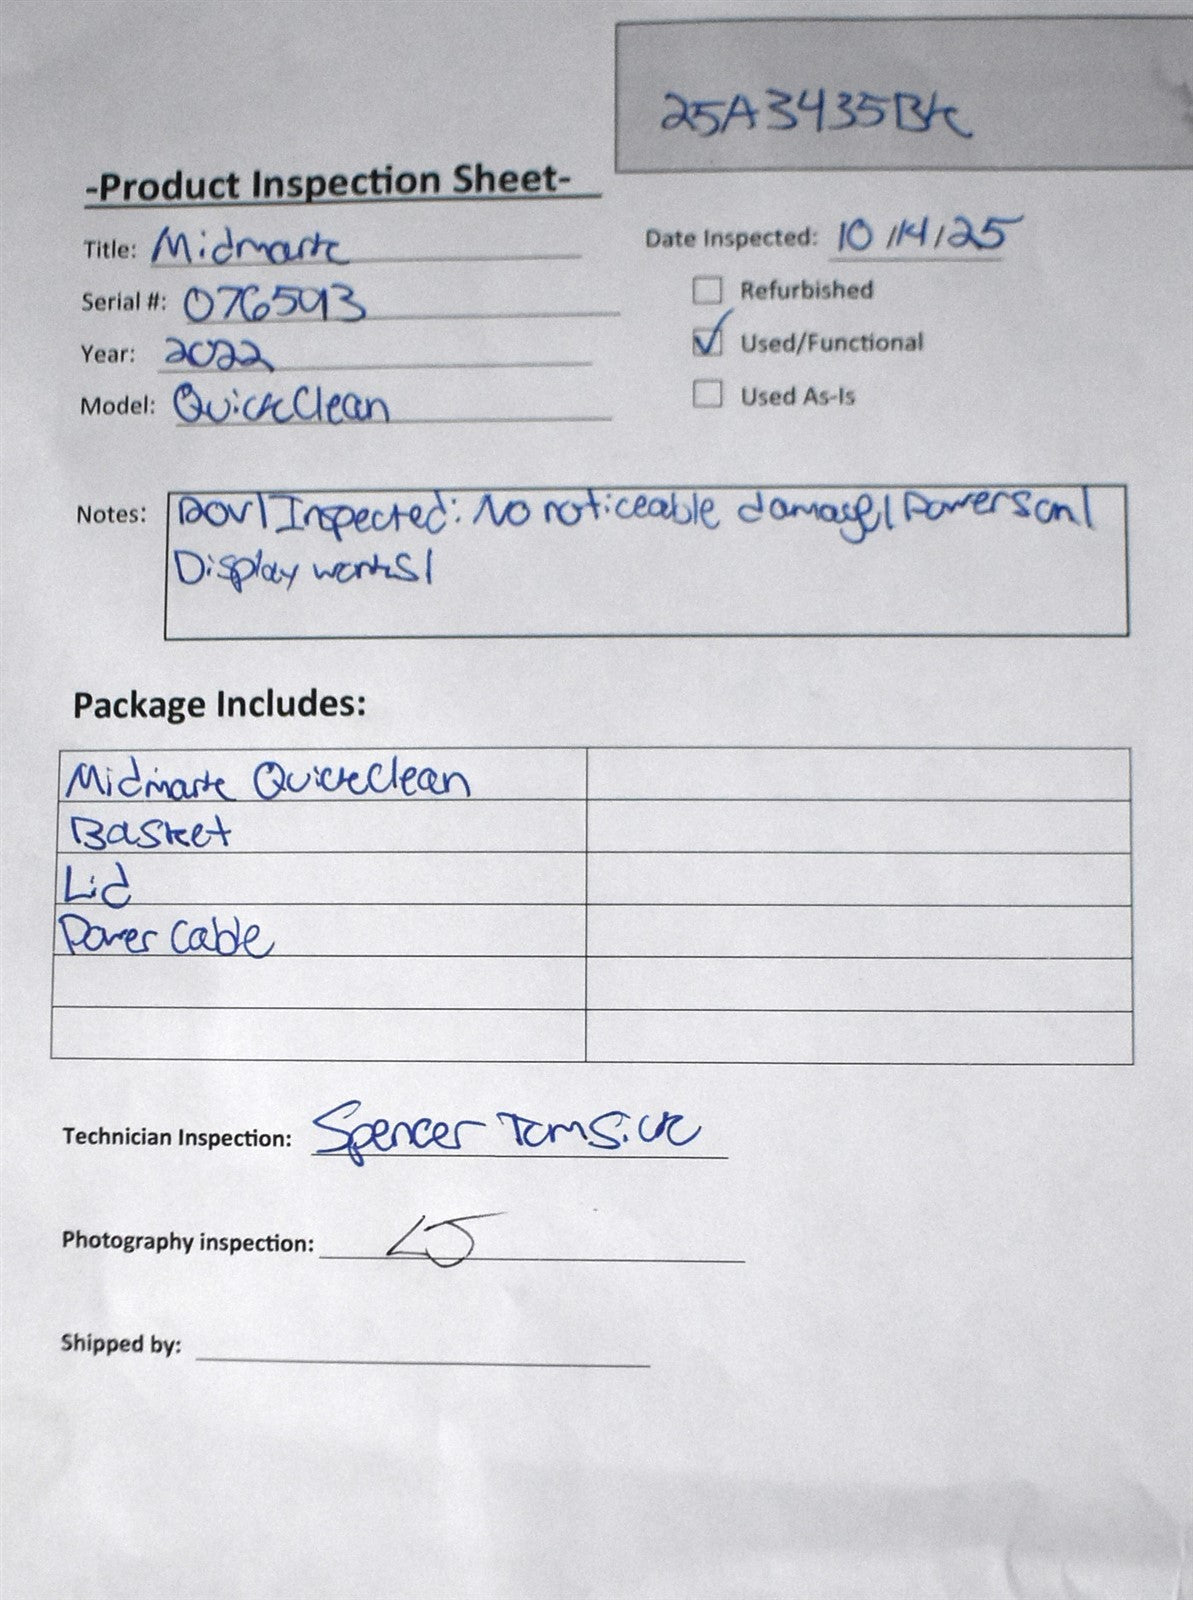 25A3435Bk
-Product Inspection Sheet-
Title: Midmark
Date Inspected: 10/14/25
Serial #: 0765943
Refurbished
Year: 2022
Used/Functional
Model: QuickClean
Used As-Is
Notes: Inspected: No noticeable damage| Powers on|
Display works|
Package Includes:
Midmark QuickClean
Basket
Lid
Power Cable
Technician Inspection: Spencer Tomsick
Photography inspection:
Shipped by: